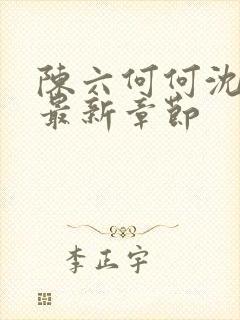 陳六何何沈
最新章節
李正宇